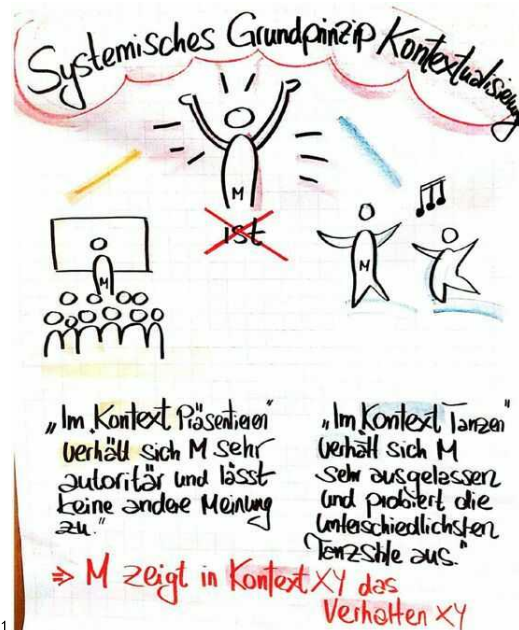 Systemisches Grundprinzip Kontextualisierung
M
ist
M
M
„Im Kontext Präsentieren"
verhält sich M sehr
autoritär und lässt
keine andere Meinung
zu."
„Im Kontext Tanzen"
verhält sich M
sehr ausgelassen
und probiert die
unterschiedlichsten
Tanzstile aus."
⇒ M zeigt in Kontext XY das
Verhalten XY
1